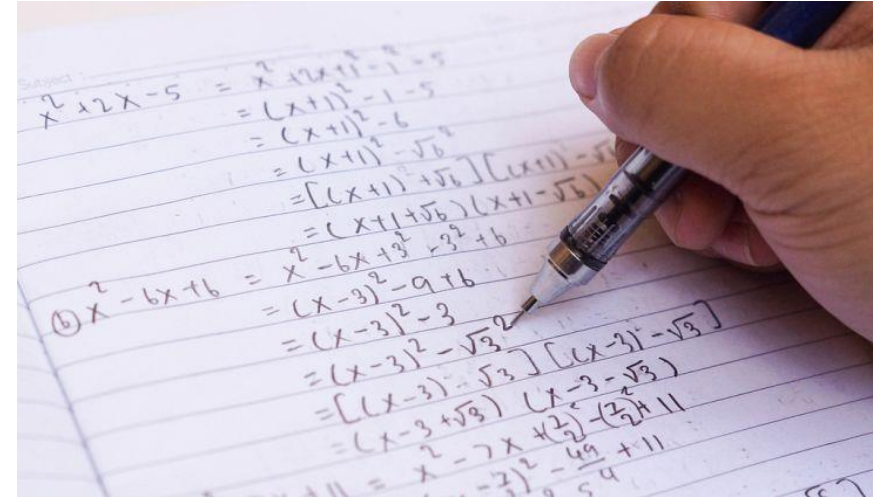 Subject :
x² + 2x - 5 = x² + 2x + 1² - 1² - 5
= (x+1)² - 1 - 5
= (x+1)² - 6
= (x+1)² - √6²
= [(x+1)² + √6] [(x+1) - √
= (x+1+√6) (x+1-√6)
(b) x² - 6x + 6 = x² - 6x + 3² - 3² + 6
= (x-3)² - 9 + 6
= (x-3)² - 3
= (x-3)² - √3²
= [(x-3) - √3] [(x-3) - √3]
= (x-3+√3) (x-3-√3)
x + 11 = x² - 7x + (7/2)² - (7/2)² + 11
- 7/2)² - 49/4 + 11